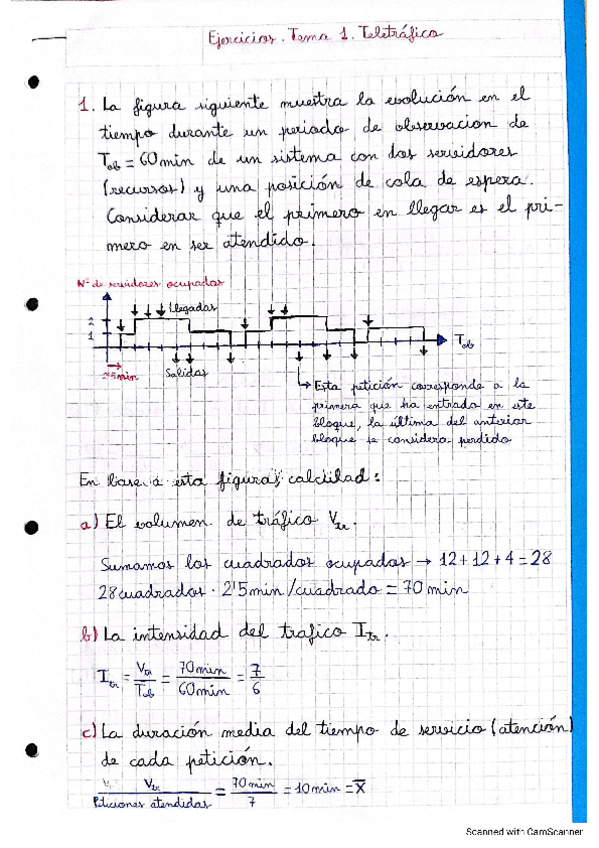 Ejercicios. Tema 1. Teletráfico
1. La figura siguiente muestra la evolución en el
tiempo durante un periodo de observacion de
Tob = 60min de un sistema con dos servidores
(recursos) y una posición de cola de espera.
Considerar que el primero en llegar es el pri-
mero en ser atendido.
Nº de servidores ocupados
Llegadas
2
1
Tob
2'5min
Salidas
Esta petición corresponde a la
primera que ha entrado en este
bloque, la última del anterior
bloque se considera perdido
En base a esta figura, calculad:
a) El volumen de tráfico Vtr.
Sumamos los cuadrados ocupados → 12+12+4=28
28 cuadrados · 2'5min/cuadrado = 70 min
b) La intensidad del trafico Itr.
Itr = Vtr/Tob = 70min/60min = 7/6
c) La duración media del tiempo de servicio (atención)
de cada petición.
Vtr/Peticiones atendidas = 70min/7 = 10min = X̅
Scanned with CamScanner